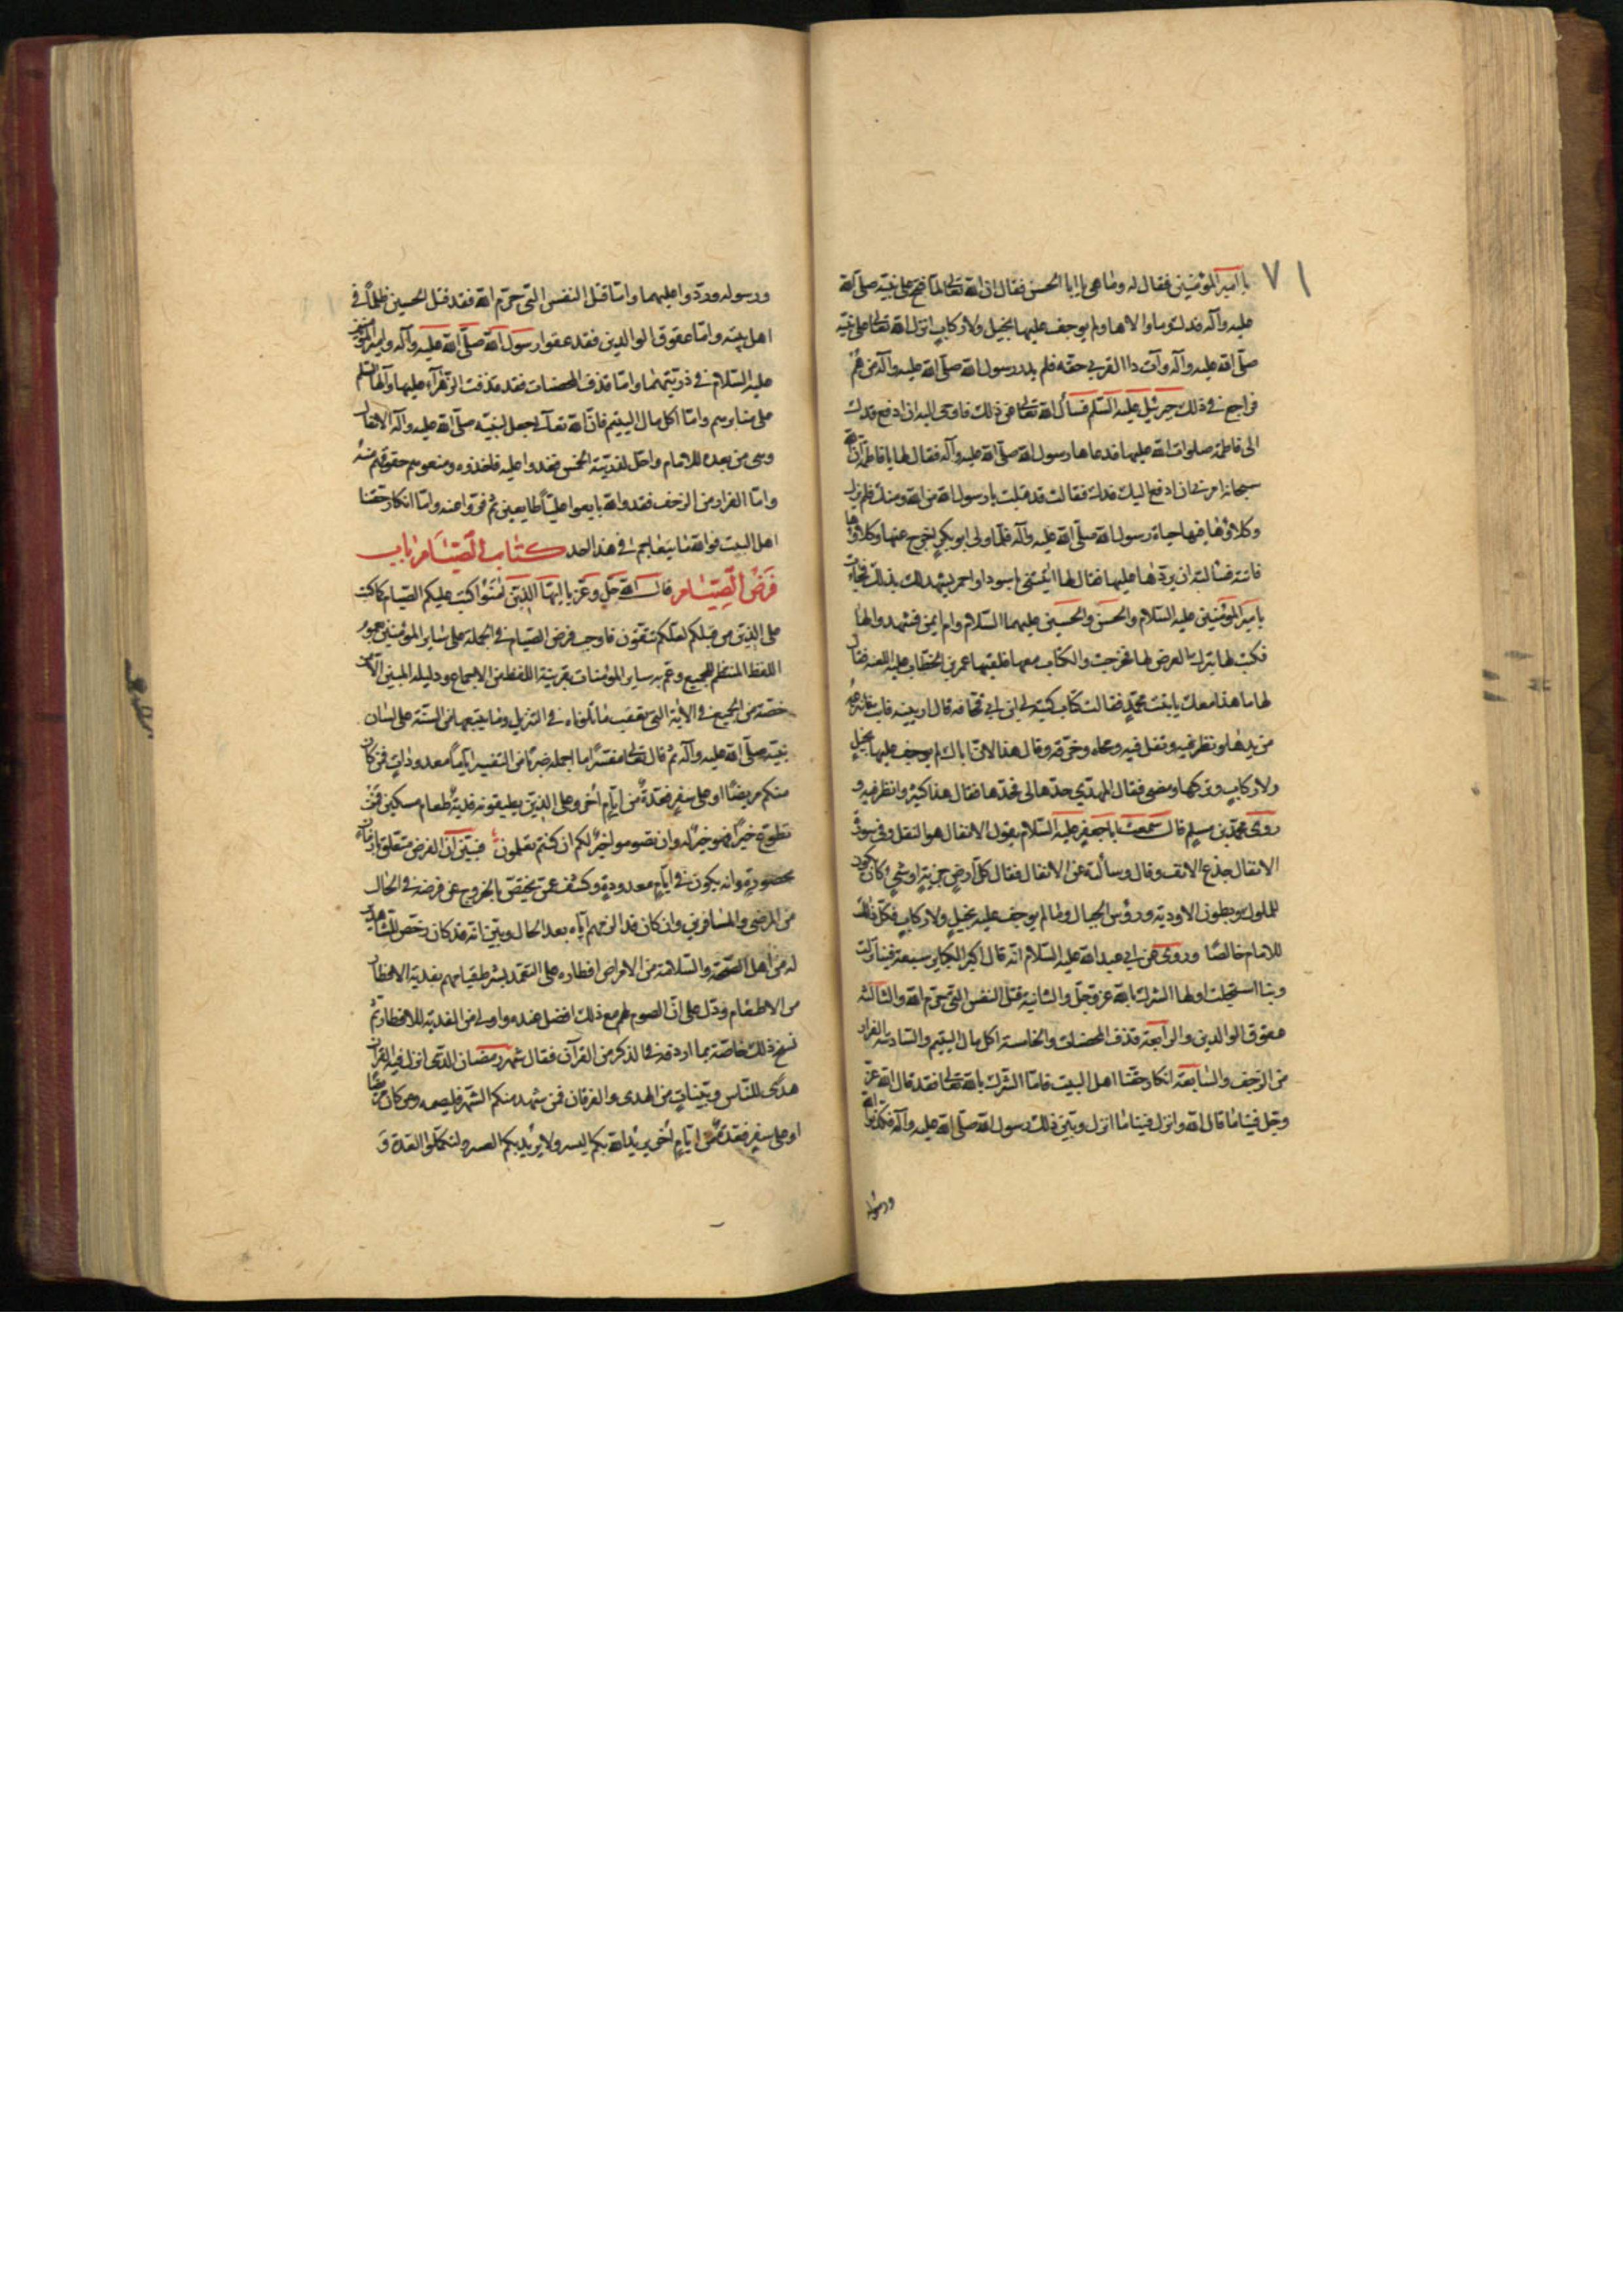 ٧١
يا امير المؤمنين فقال له وما هي يا ابا الحسن فقال ان الله تعالى لما فتح على نبيه صلى الله
عليه وآله فدك وما والاها ولم يوجف عليها بخيل ولا ركاب انزل الله تعالى على نبيه
صلى الله عليه وآله وآت ذا القربى حقه فلم يدر رسول الله صلى الله عليه وآله من هم
فراجع في ذلك جبرئيل عليه السلم فسأل الله تعالى عن ذلك فاوحى اليه ان ادفع فدك
الى فاطمة صلوات الله عليها فدعاها رسول الله صلى الله عليه وآله فقال لها يا فاطمة ان الله
سبحانه امرني ان ادفع اليك فدك فقالت قد قبلت يا رسول الله من الله ومنك فلم يزل
وكلاؤها فيها حياة رسول الله صلى الله عليه وآله فلما ولى ابو بكر اخرج عنها وكلاؤها
فاتته فسالته ان يردها عليها فقال لها ائتيني باسود او احمر يشهد لك بذلك فجاءت
بامير المؤمنين عليه السلام والحسن والحسين عليهما السلام وام ايمن فشهدوا لها
فكتب لها بترك العرض لها فخرجت والكتاب معها فلقيها عمر بن الخطاب عليه اللعنه فقال
لها ما هذا معك يا بنت محمد فقالت كتاب كتبه لي ابن ابي قحافه قال ارينيه فابت فانتزعه
من يدها ونظر فيه وتفل فيه ومحاه وخرقه وقال هذا لان اباك لم يوجف عليها بخيل
ولا ركاب وتركها ومضى فقال المهدي حدها لي فحدها فقال هذا كثير وانظر فيه و
روى محمد بن مسلم قال سمعت ابا جعفر عليه السلام يقول الانفال هو النفل وفي سورة
الانفال جذع الانف وقال وسألته عن الانفال فقال كل ارض خربة او شيء كان يكون
للملوك وبطون الاودية ورؤس الجبال وما لم يوجف عليه بخيل ولا ركاب فكل ذلك
للامام خالصا وروى عن ابي عبد الله عليه السلام انه قال اكبر الكباير سبعة فينا نزلت
وبنا استحلت اولها الشرك بالله عز وجل والثانية قتل النفس التي حرم الله والثالثة
عقوق الوالدين والرابعة قذف المحصنات والخامسة اكل مال اليتيم والسادسة الفرار
من الزحف والسابعة انكار حقنا اهل البيت فاما الشرك بالله تعالى فقد قال الله عز
وجل فينا ما قال الله وانزل فينا ما انزل وبين ذلك رسول الله صلى الله عليه وآله فكذبوا الله
ورسوله
ورسوله وردوا عليهما واما قتل النفس التي حرم الله فقد قتل الحسين ظلما في
اهل بيته واما عقوق الوالدين فقد عقوا رسول الله صلى الله عليه وآله وامير المؤمنين
عليه السلام في ذريتهما واما قذف المحصنات فقد قذفت الزهرآء عليها وآلها السلم
على منابرهم واما اكل مال اليتيم فان الله تعالى جعل لنبيه صلى الله عليه وآله الانفال
وهي من بعده للامام واحل لذريته الخمس فتعدوا عليه فاخذوه ومنعوهم حقوقهم منه
واما الفرار من الزحف فقد والله بايعوا عليا طايعين ثم فروا عنه واما انكار حقنا
اهل البيت فوالله ما يتعاجم في هذا احد كتاب الصيام باب
فرض الصيام قال الله جل وعز يا ايها الذين امنوا كتب عليكم الصيام كما كتب
على الذين من قبلكم لعلكم تتقون فاوجب فرض الصيام في الجملة على ساير المؤمنين بعموم
اللفظ المنتظم للجميع وعم به ساير المؤمنات بقرينة اللفظ من الاجماع ودليله المبين الا من
خصه من الجميع في الاية التي تعقب ما تلوناه في التنزيل وما يتبعها من السنة على لسان
نبيه صلى الله عليه وآله ثم قال تعالى مفسرا لما اجمله ضربا من التفسير اياما معدودات فمن كان
منكم مريضا او على سفر فعدة من ايام اخر وعلى الذين يطيقونه فدية طعام مسكين فمن
تطوع خيرا فهو خير له وان تصوموا خير لكم ان كنتم تعلمون فبين ان الفرض متعلق بازمان
محصورة وانه يكون في ايام معدودة وكشف عمن يختص بالخروج عن فرضه في الحال
من المرضى والمسافرين وان كان قد الزمهم اياه بعد الحال وبين انه قد كان رخص للشاهدين
له من اهل الصحة والسلامة من الامراض افطاره على التعمد بشرط قيامهم بفدية الافطار
من الاطعام ودل على ان الصوم لهم مع ذلك افضل عنده واولى من الفدية للافطار ثم
نسخ ذلك خاصة بما اردفه في الذكر من القرآن فقال شهر رمضان الذي انزل فيه القرآن
هدى للناس وبينات من الهدى والفرقان فمن شهد منكم الشهر فليصمه ومن كان مريضا
او على سفر فعدة من ايام اخر يريد الله بكم اليسر ولا يريد بكم العسر ولتكملوا العدة و